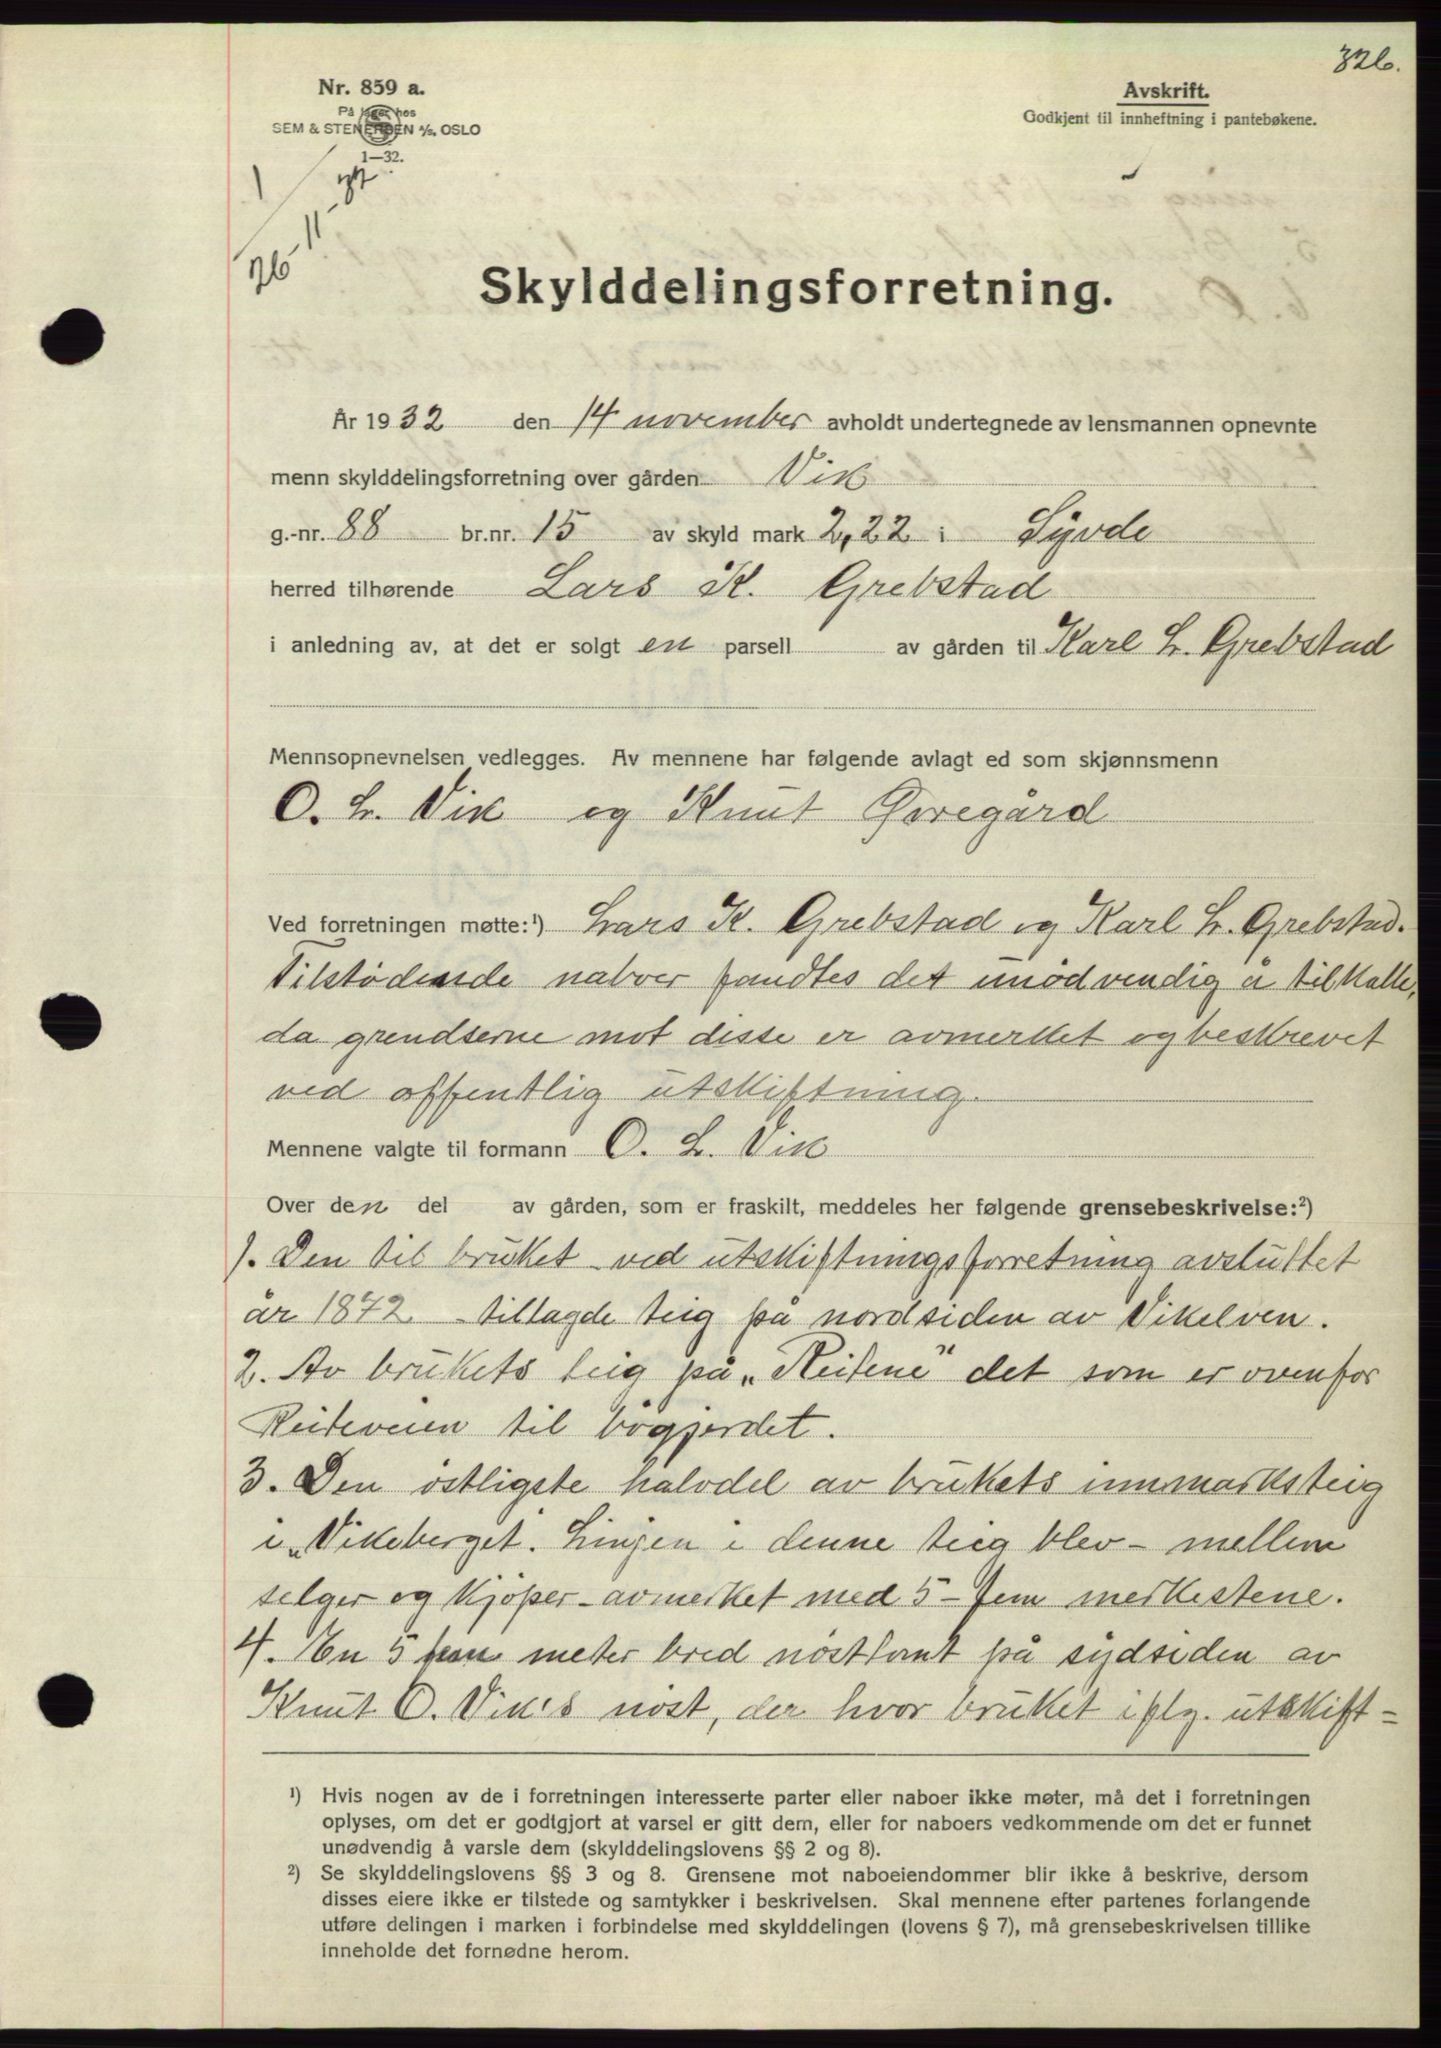 326.
Nr. 859 a.
På lager hos
SEM & STENERSEN A/S, OSLO
1—32.
Avskrift.
Godkjent til innheftning i pantebøkene.
26/11
Skylddelingsforretning.
År 1932 den 14 november avholdt undertegnede av lensmannen opnevnte
menn skylddelingsforretning over gården Vik
g.-nr. 88 br.nr. 15 av skyld mark 2,22 i Syvde
herred tilhørende Lars K. Grebstad
i anledning av, at det er solgt en parsell av gården til Karl L. Grebstad
Mennsopnevnelsen vedlegges. Av mennene har følgende avlagt ed som skjønnsmenn
O. L. Vik og Knut Øvregård
Ved forretningen møtte:¹) Lars K. Grebstad og Karl L. Grebstad.
Tilstødende naboer fandtes det unødvendig å tilkalle,
da grendserne mot disse er avmerket og beskrevet
ved offentlig utskiftning.
Mennene valgte til formann O. L. Vik
Over den del av gården, som er fraskilt, meddeles her følgende grensebeskrivelse:²)
1. Den til bruket ved utskiftningsforretning avsluttet
år 1872 tillagde teig på nordsiden av Vikelven.
2. Av brukets teig på „Reitene" det som er ovenfor
Reiteveien til bøgjerdet.
3. Den østligste halvdel av brukets innmarksteig
i „Vikeberget. Linjen i denne teig blev - mellem
selger og kjøper - avmerket med 5 - fem merkestene.
4. En 5 fem meter bred nøsttomt på sydsiden av
Knut O. Vik's nøst, der hvor bruket iflg. utskift=
¹) Hvis nogen av de i forretningen interesserte parter eller naboer ikke møter, må det i forretningen
oplyses, om det er godtgjort at varsel er gitt dem, eller for naboers vedkommende om det er funnet
unødvendig å varsle dem (skylddelingslovens §§ 2 og 8).
²) Se skylddelingslovens §§ 3 og 8. Grensene mot naboeiendommer blir ikke å beskrive, dersom
disses eiere ikke er tilstede og samtykker i beskrivelsen. Skal mennene efter partenes forlangende
utføre delingen i marken i forbindelse med skylddelingen (lovens § 7), må grensebeskrivelsen tillike
inneholde det fornødne herom.